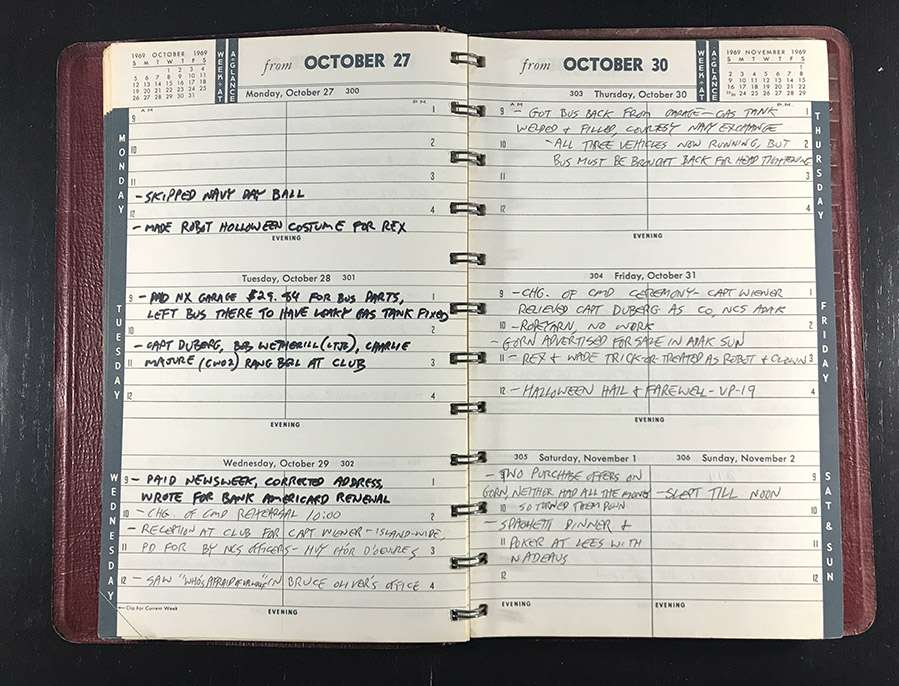 1969 OCTOBER 1969
S M T W T F S
1 2 3 4
5 6 7 8 9 10 11
12 13 14 15 16 17 18
19 20 21 22 23 24 25
26 27 28 29 30 31
WEEK-AT
A-GLANCE
from OCTOBER 27
Monday, October 27 300
MONDAY
AM
PM
9 1
10 2
11 3
- SKIPPED NAVY DAY BALL
12 4
- MADE ROBOT HOLLOWEEN COSTUME FOR REX
EVENING
Tuesday, October 28 301
TUESDAY
9 - PAID NX GARAGE $29.84 FOR BUS PARTS, 1
LEFT BUS THERE TO HAVE LEAKY GAS TANK FIXED
10 2
- CAPT DUBERG, BEB WETHERILL (LTJG), CHARLIE
11 MAJURE (CWO2) RANG BELL AT CLUB 3
12 4
EVENING
Wednesday, October 29 302
WEDNESDAY
9 - PAID NEWSWEEK, CORRECTED ADDRESS, 1
WROTE FOR BANK AMERICARD RENEWAL
10 - CHG. OF CMD REHEARSAL 10:00 2
- RECEPTION AT CLUB FOR CAPT WIENER - ISLAND-WIDE,
11 PD FOR BY NCS OFFICERS - HVY HOR D'OEUVRES 3
12 - SAW "WHO'S AFRAID OF V. WOOLF" IN BRUCE OLIVER'S OFFICE 4
EVENING
←Clip For Current Week
from OCTOBER 30
WEEK-AT
A-GLANCE
1969 NOVEMBER 1969
S M T W T F S
1
2 3 4 5 6 7 8
9 10 11 12 13 14 15
16 17 18 19 20 21 22
23/30 24 25 26 27 28 29
303 Thursday, October 30
THURSDAY
AM
PM
9 - GOT BUS BACK FROM GARAGE - GAS TANK 1
WELDED & FILLED, COURTESY NAVY EXCHANGE
10 - ALL THREE VEHICLES NOW RUNNING, BUT 2
BUS MUST BE BROUGHT BACK FOR HEAD TIGHTENING
11 3
12 4
EVENING
304 Friday, October 31
FRIDAY
9 - CHG. OF CMD CEREMONY - CAPT WIENER 1
RELIEVED CAPT DUBERG AS CO, NCS ADAK
10 - ROPEYARN, NO WORK 2
- GORN ADVERTISED FOR SALE IN ADAK SUN
11 - REX & WADE TRICK-OR-TREATED AS ROBOT & CLOWN 3
12 - HALLOWEEN HAIL & FAREWELL - VP-19 4
EVENING
305 Saturday, November 1
SAT & SUN
9 - TWO PURCHASE OFFERS ON
GORN NEITHER HAD ALL THE MONEY
10 SO TURNED THEM DOWN
- SPAGHETTI DINNER &
11 POKER AT LEES WITH
NADEAUS
12
EVENING
306 Sunday, November 2
9
- SLEPT TILL NOON
10
11
12
EVENING